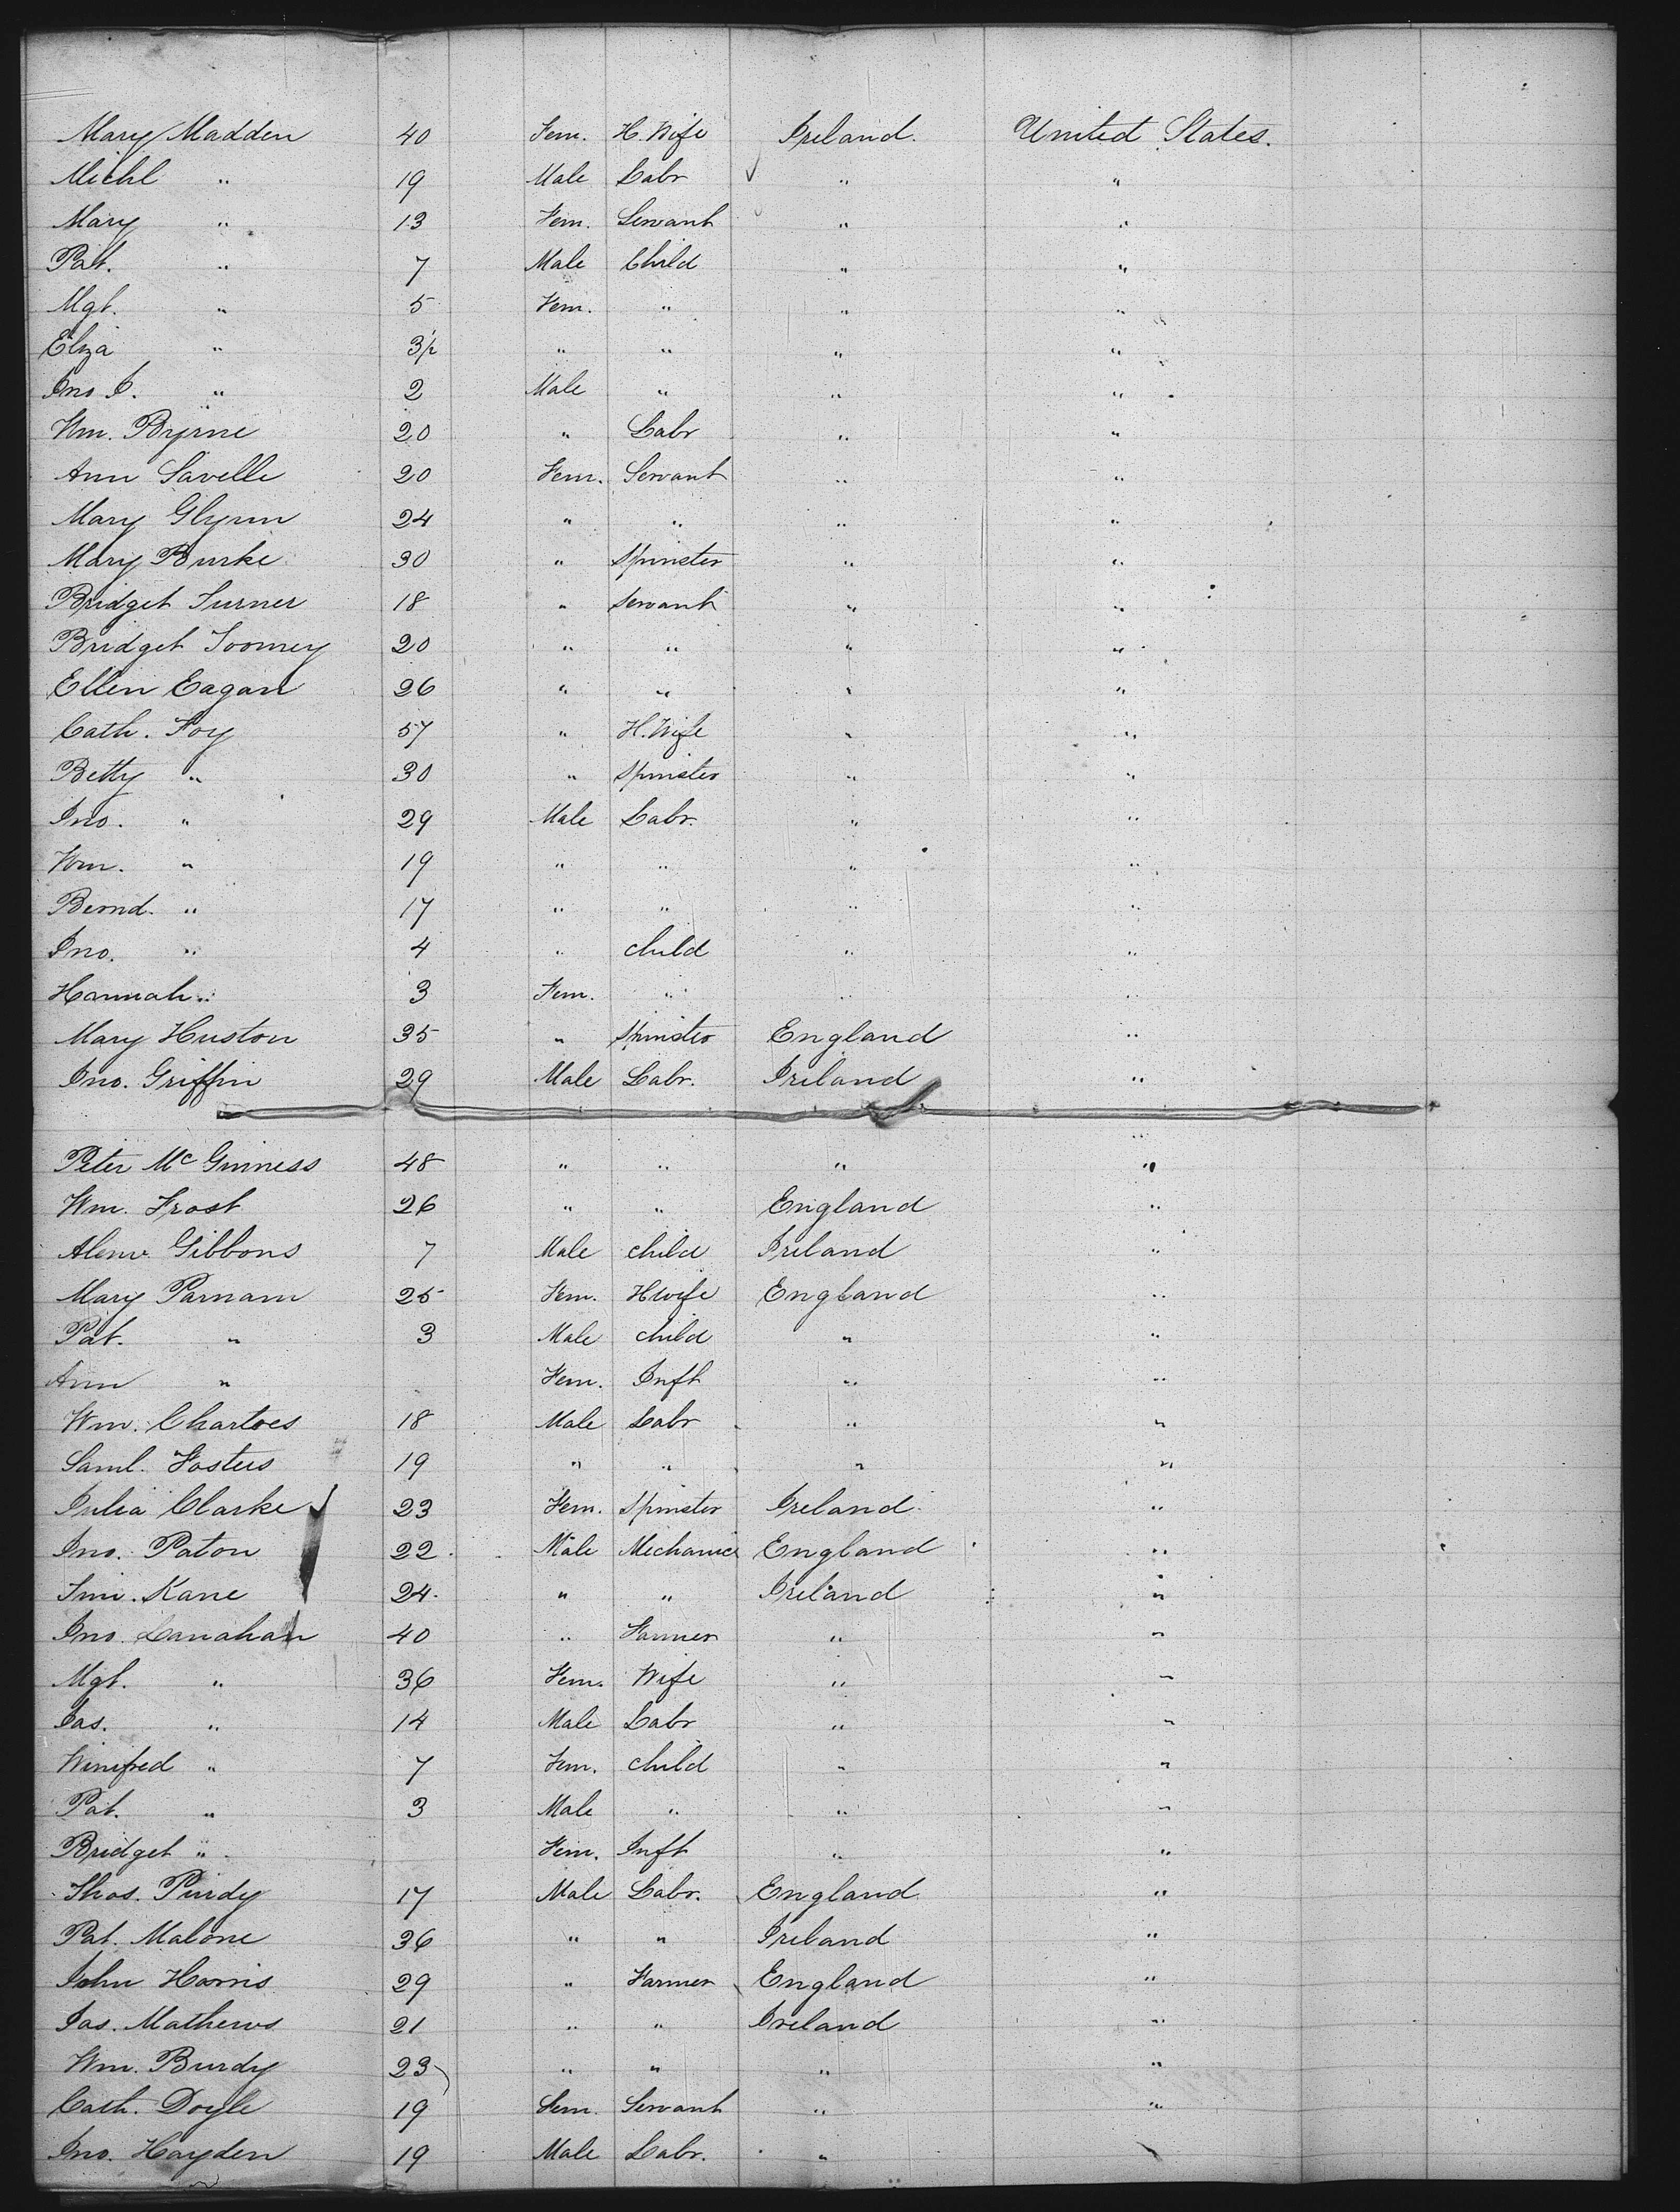 Mary Madden 40 Fem. H. Wife Ireland. United States.
Michl " 19 Male Labr " "
Mary " 13 Fem. Servant " "
Pat. " 7 Male Child " "
Mgt. " 5 Fem. " " "
Eliza " 3½ " " " "
Jno J. " 2 Male " " "
Wm. Byrne 20 " Labr " "
Ann Savelle 20 Fem. Servant " "
Mary Glynn 24 " " " "
Mary Burke 30 " Spinster " "
Bridget Turner 18 " Servant " "
Bridget Toomey 20 " " " "
Ellen Eagan 26 " " " "
Cath. Foy 57 " H. Wife " "
Betty " 30 " Spinster " "
Jno. " 29 Male Labr. " "
Wm. " 19 " " " "
Bernd. " 17 " " " "
Jno. " 4 " child " "
Hannah " 3 Fem. " " "
Mary Huston 35 " Spinster England "
Jno. Griffin 29 Male Labr. Ireland "
Peter McGuiness 48 " " " "
Wm. Frost 26 " " England "
Gibbons 7 Male child Ireland "
Mary Parnam 25 Fem. H wife England "
Pat. " 3 Male child " "
Ann " Fem. Inft " "
Wm. Chartoes 18 Male Labr " "
Saml. Fosters 19 " " " "
Julia Clarke 23 Fem. Spinster Ireland "
Jno. Paton 22 Male Mechanic England "
Kane 24 " " Ireland "
Jno. Lanahan 40 " Farmer " "
Mgt. " 36 Fem. Wife " "
Jas. " 14 Male Labr " "
Winifred " 7 Fem. child " "
Pat. " 3 Male " " "
Bridget " Fem. Inft " "
Thos. Purdy 17 Male Labr. England "
Pat. Malone 36 " " Ireland "
John Harris 29 " Farmer England "
Jas. Mathews 21 " " Ireland "
Wm. Burdy 23 " " " "
Cath. Doyle 19 Fem. Servant " "
Jno. Hayden 19 Male Labr. " "